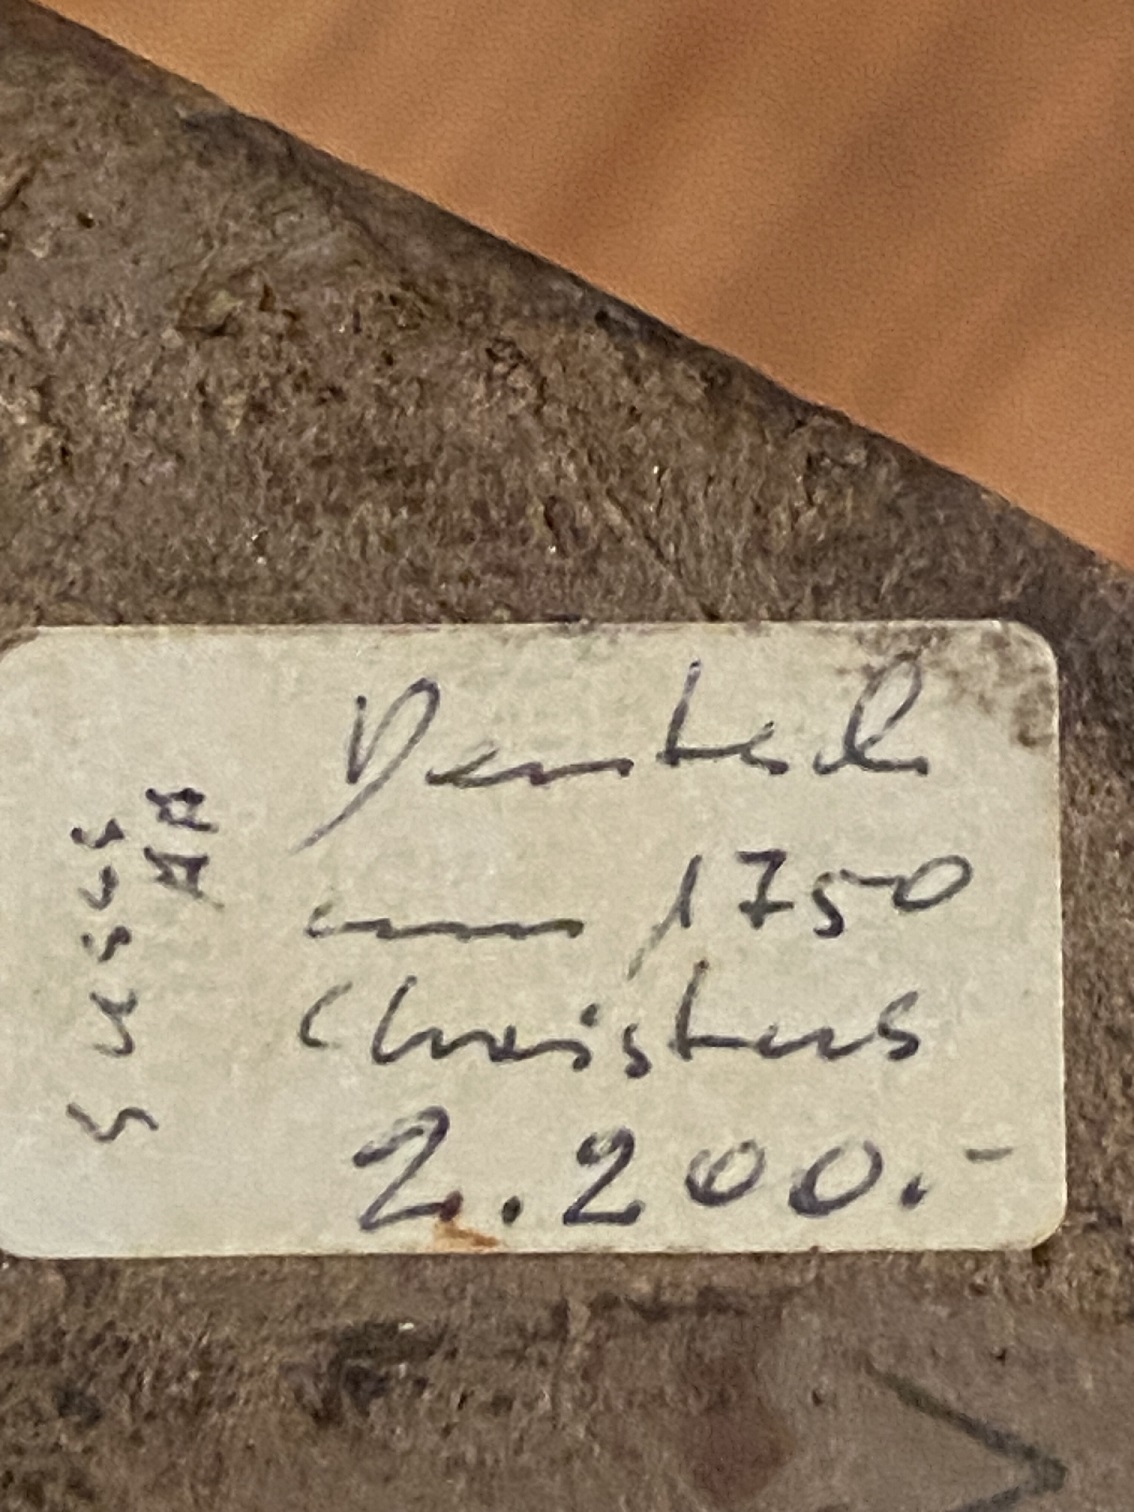 Deutsch
um 1750
Christus
2.200.-